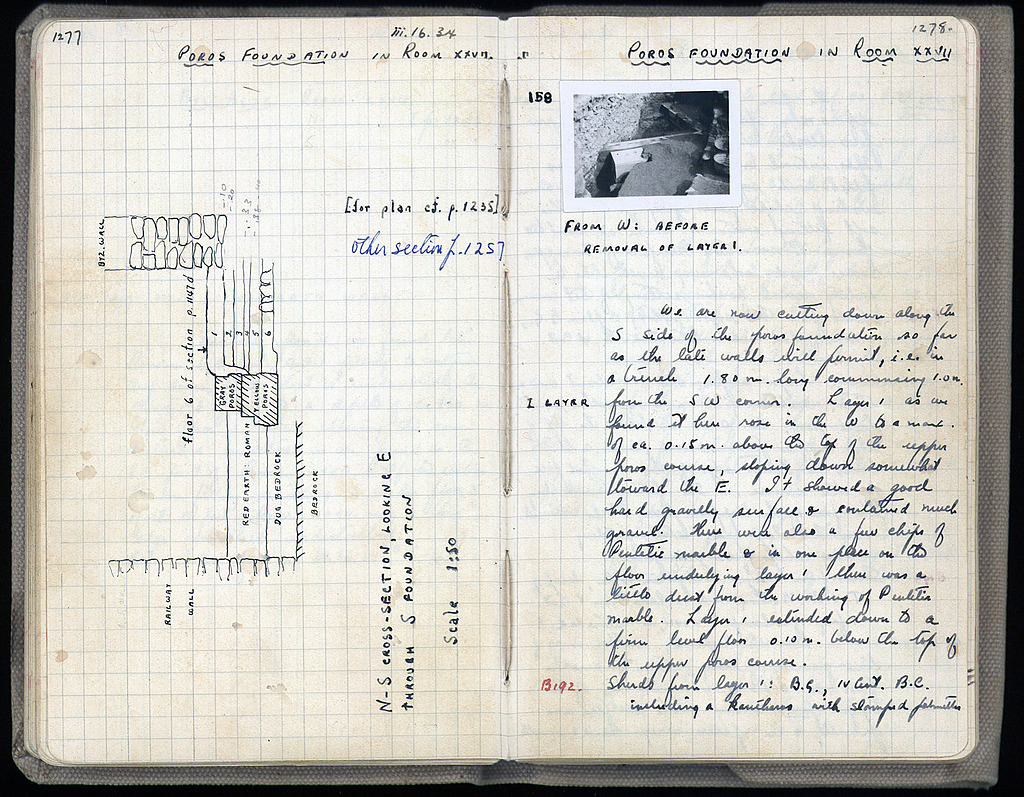 1277
III.16.34
POROS FOUNDATION IN ROOM XXVII.
[for plan cf. p.1235]
other section p.1257
-.10
-.20
-1.33
BYZ. WALL
floor 6 of section p.1147d
1
2
3
4
5
6
GRAY
POROS
YELLOW
POROS
RED EARTH: ROMAN
DUG BEDROCK
BEDROCK
RAILWAY
WALL
N-S CROSS-SECTION, LOOKING E
THROUGH S FOUNDATION
Scale 1:50
1278.
POROS FOUNDATION IN ROOM XXVII
158
FROM W: BEFORE
REMOVAL OF LAYER 1.
We are now cutting down along the
S side of the poros foundation so far
as the late walls will permit, i.e. in
a trench 1.80 m. long commencing 1.0 m.
I LAYER from the SW corner. Layer 1 as we
found it here rose in the W to a max.
of ca. 0.15 m. above the top of the upper
poros course, sloping down somewhat
toward the E. It showed a good
hard gravelly surface & contained much
gravel. There were also a few chips of
Pentelic marble & in one place on the
floor underlying layer 1 there was a
little dust from the working of Pentelic
marble. Layer 1 extended down to a
firm level floor 0.10 m. below the top of
the upper poros course.
B192. Sherds from layer 1: B.G., IV Cent. B.C.
including a Kantharos with stamped palmettes